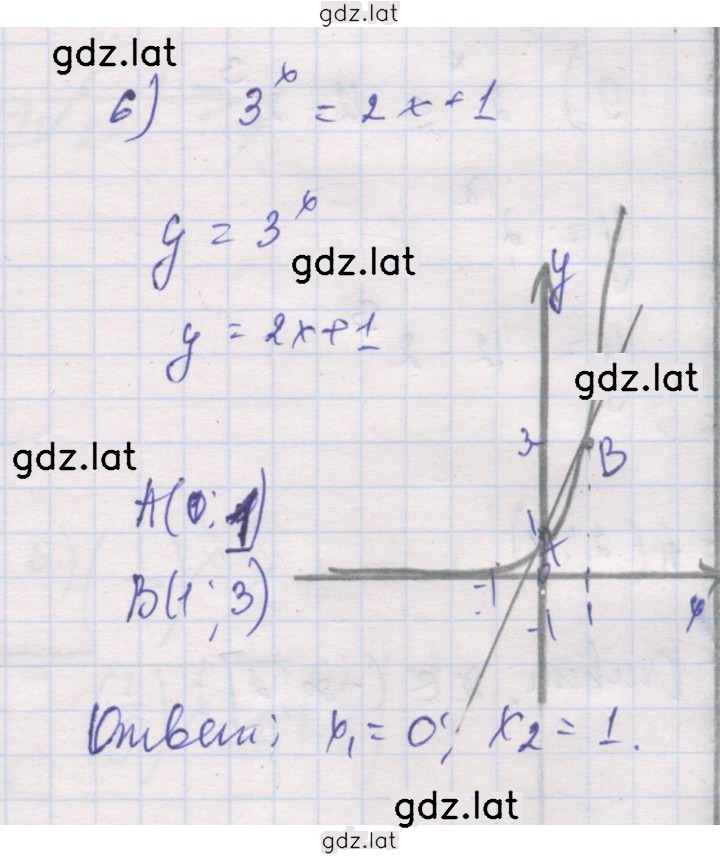 gdz.lat
gdz.lat
б) 3^x = 2x+1
y = 3^x
gdz.lat
y = 2x+1
y
gdz.lat
3
B
gdz.lat
A(0; 1)
1
A
B(1; 3)
-1
0
1
x
-1
Ответ: x₁ = 0; x₂ = 1.
gdz.lat
gdz.lat